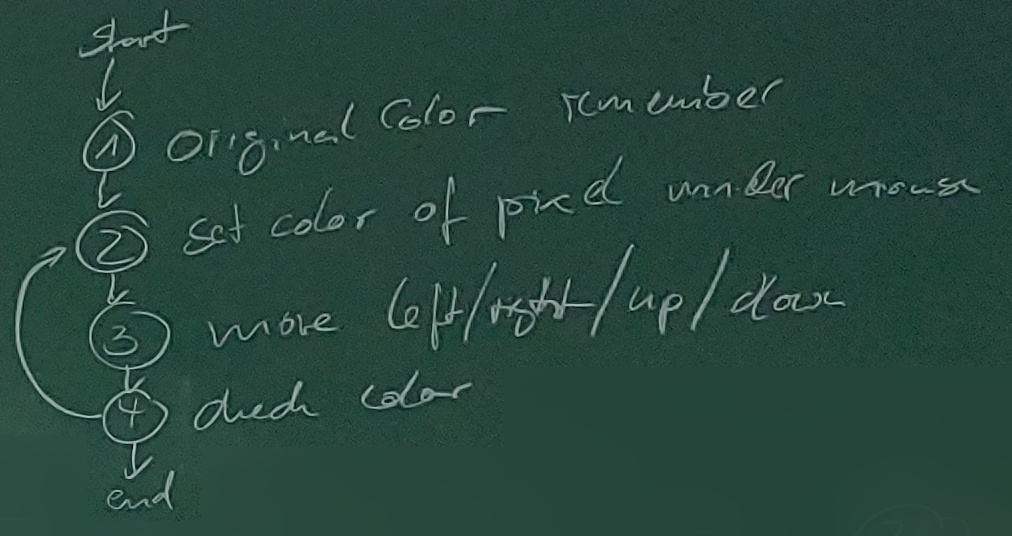 start
1 Original Color remember
2 set color of pixel under mouse
3 move left/right/up/down
4 check color
end